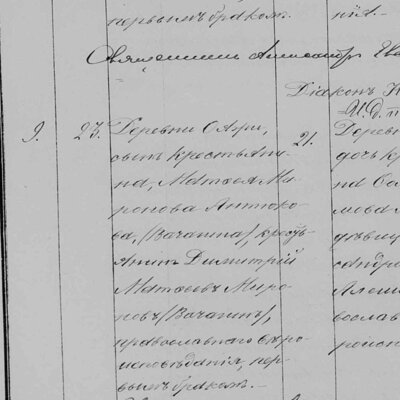 первымъ бракомъ.
ніл.
Священникъ Александръ Ев
Діаконъ К
И. д. п
9.
23.
Деревни Оари,
сынъ крестьяни-
на, Матвея Ми-
ронова
ва, (Вачагина), кресть-
янинъ Димитрій
Матвеевъ Миро-
новъ (Вачагинъ),
православнаго вѣро-
исповѣданія, пер-
вымъ бракомъ.
21.
Деревн
дочь кр
на
мова
дѣвиц
сандр
Алекс
вослав
роисп